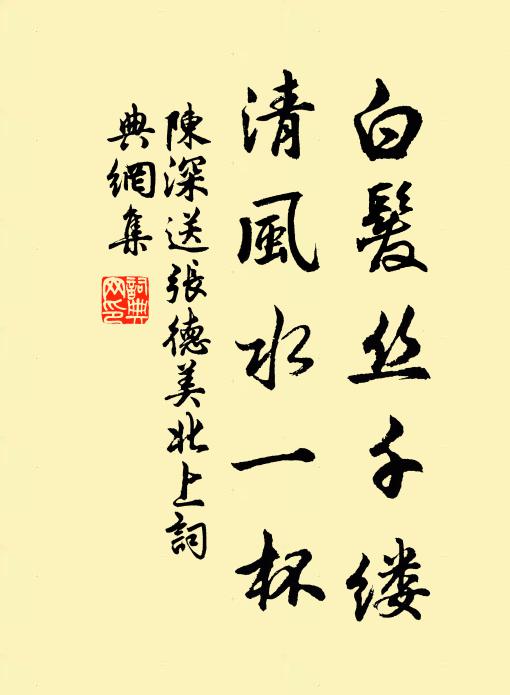 白髮丝千缕
清風水一杯
陳深送張德美北上詞
典網集
詞典网印